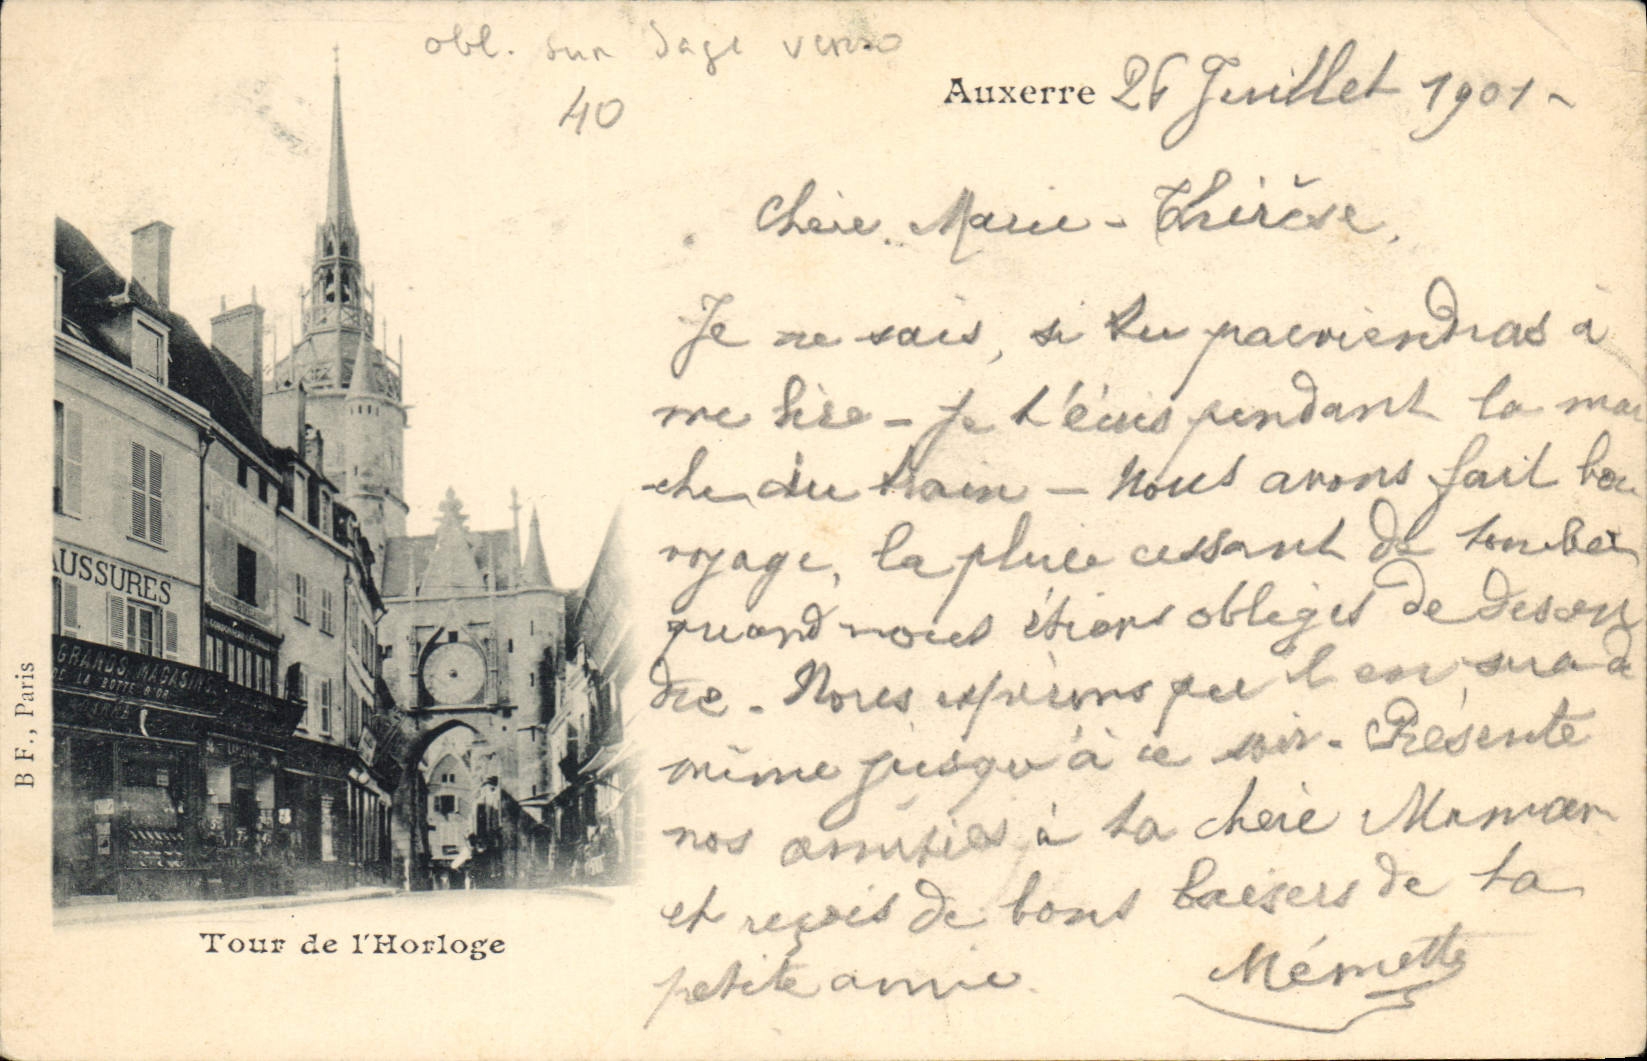 obl. sur Sage verso
40
Auxerre 26 Juillet 1901 -
Chère Marie-Thérèse,
Je ne sais, si tu parviendras à
me lire - Je t'écris pendant la mar
che du train - Nous avons fait bon
voyage, la pluie cessant de tomber
quand nous étions obligés de descen
dre - Nous espérons qu'il en sera de
même jusqu'à ce soir - Présente
nos amitiés à ta chère Maman
et reçois de bons baisers de ta
petite amie.
Mémette
AUSSURES
GRANDS MAGASINS
DE LA BOTTE D'OR
B F., Paris
Tour de l'Horloge